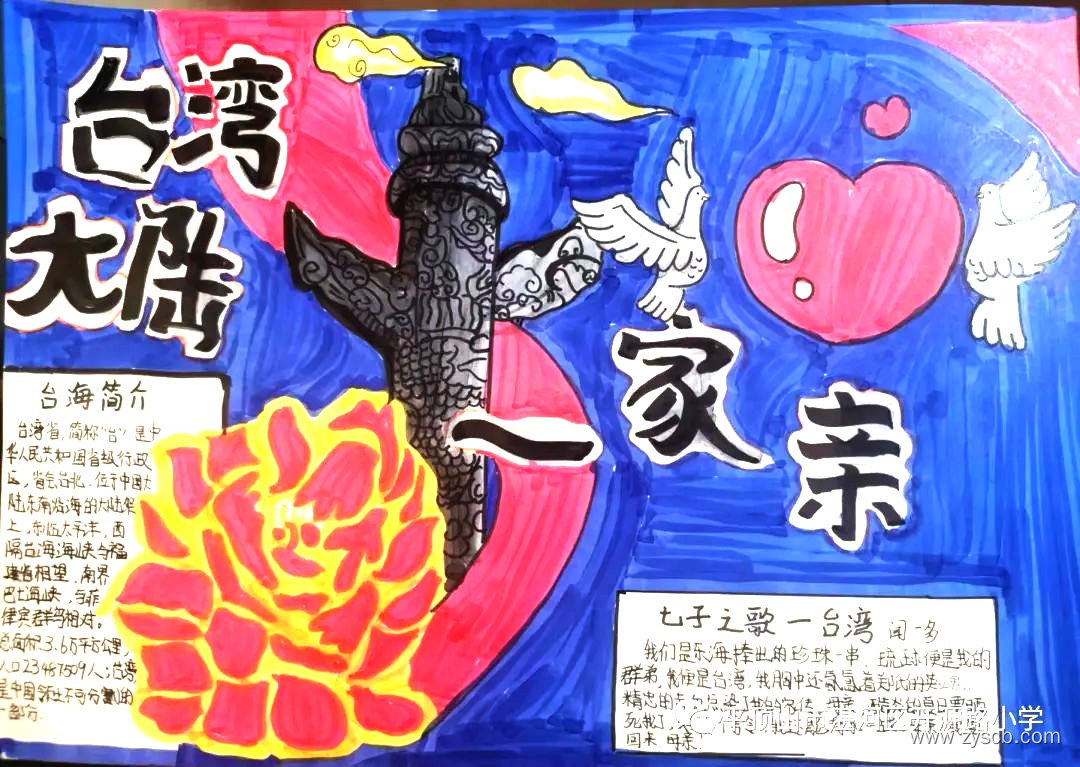 台湾
大陆
一
家
亲
台海简介
台湾省,简称"台",是中
华人民共和国省级行政
区,省会台北,位于中国大
陆东南沿海的大陆架
上,东临太平洋,西
隔台湾海峡与福
建省相望,南界
巴士海峡,与菲
律宾群岛相对。
总面积3.6万平方公里,
人口23487509人,台湾
是中国领土不可分割的
一部分.
七子之歌一台湾 闻一多
我们是东海捧出的珍珠一串,琉球便是我的
群弟,我便是台湾,我胸中还氤氲着郑氏的英魂,
精忠的赤血点染了我的家传,母亲,酷炎的夏日要晒
死我了,
回来 母亲!
路小学
www.zysdb.com